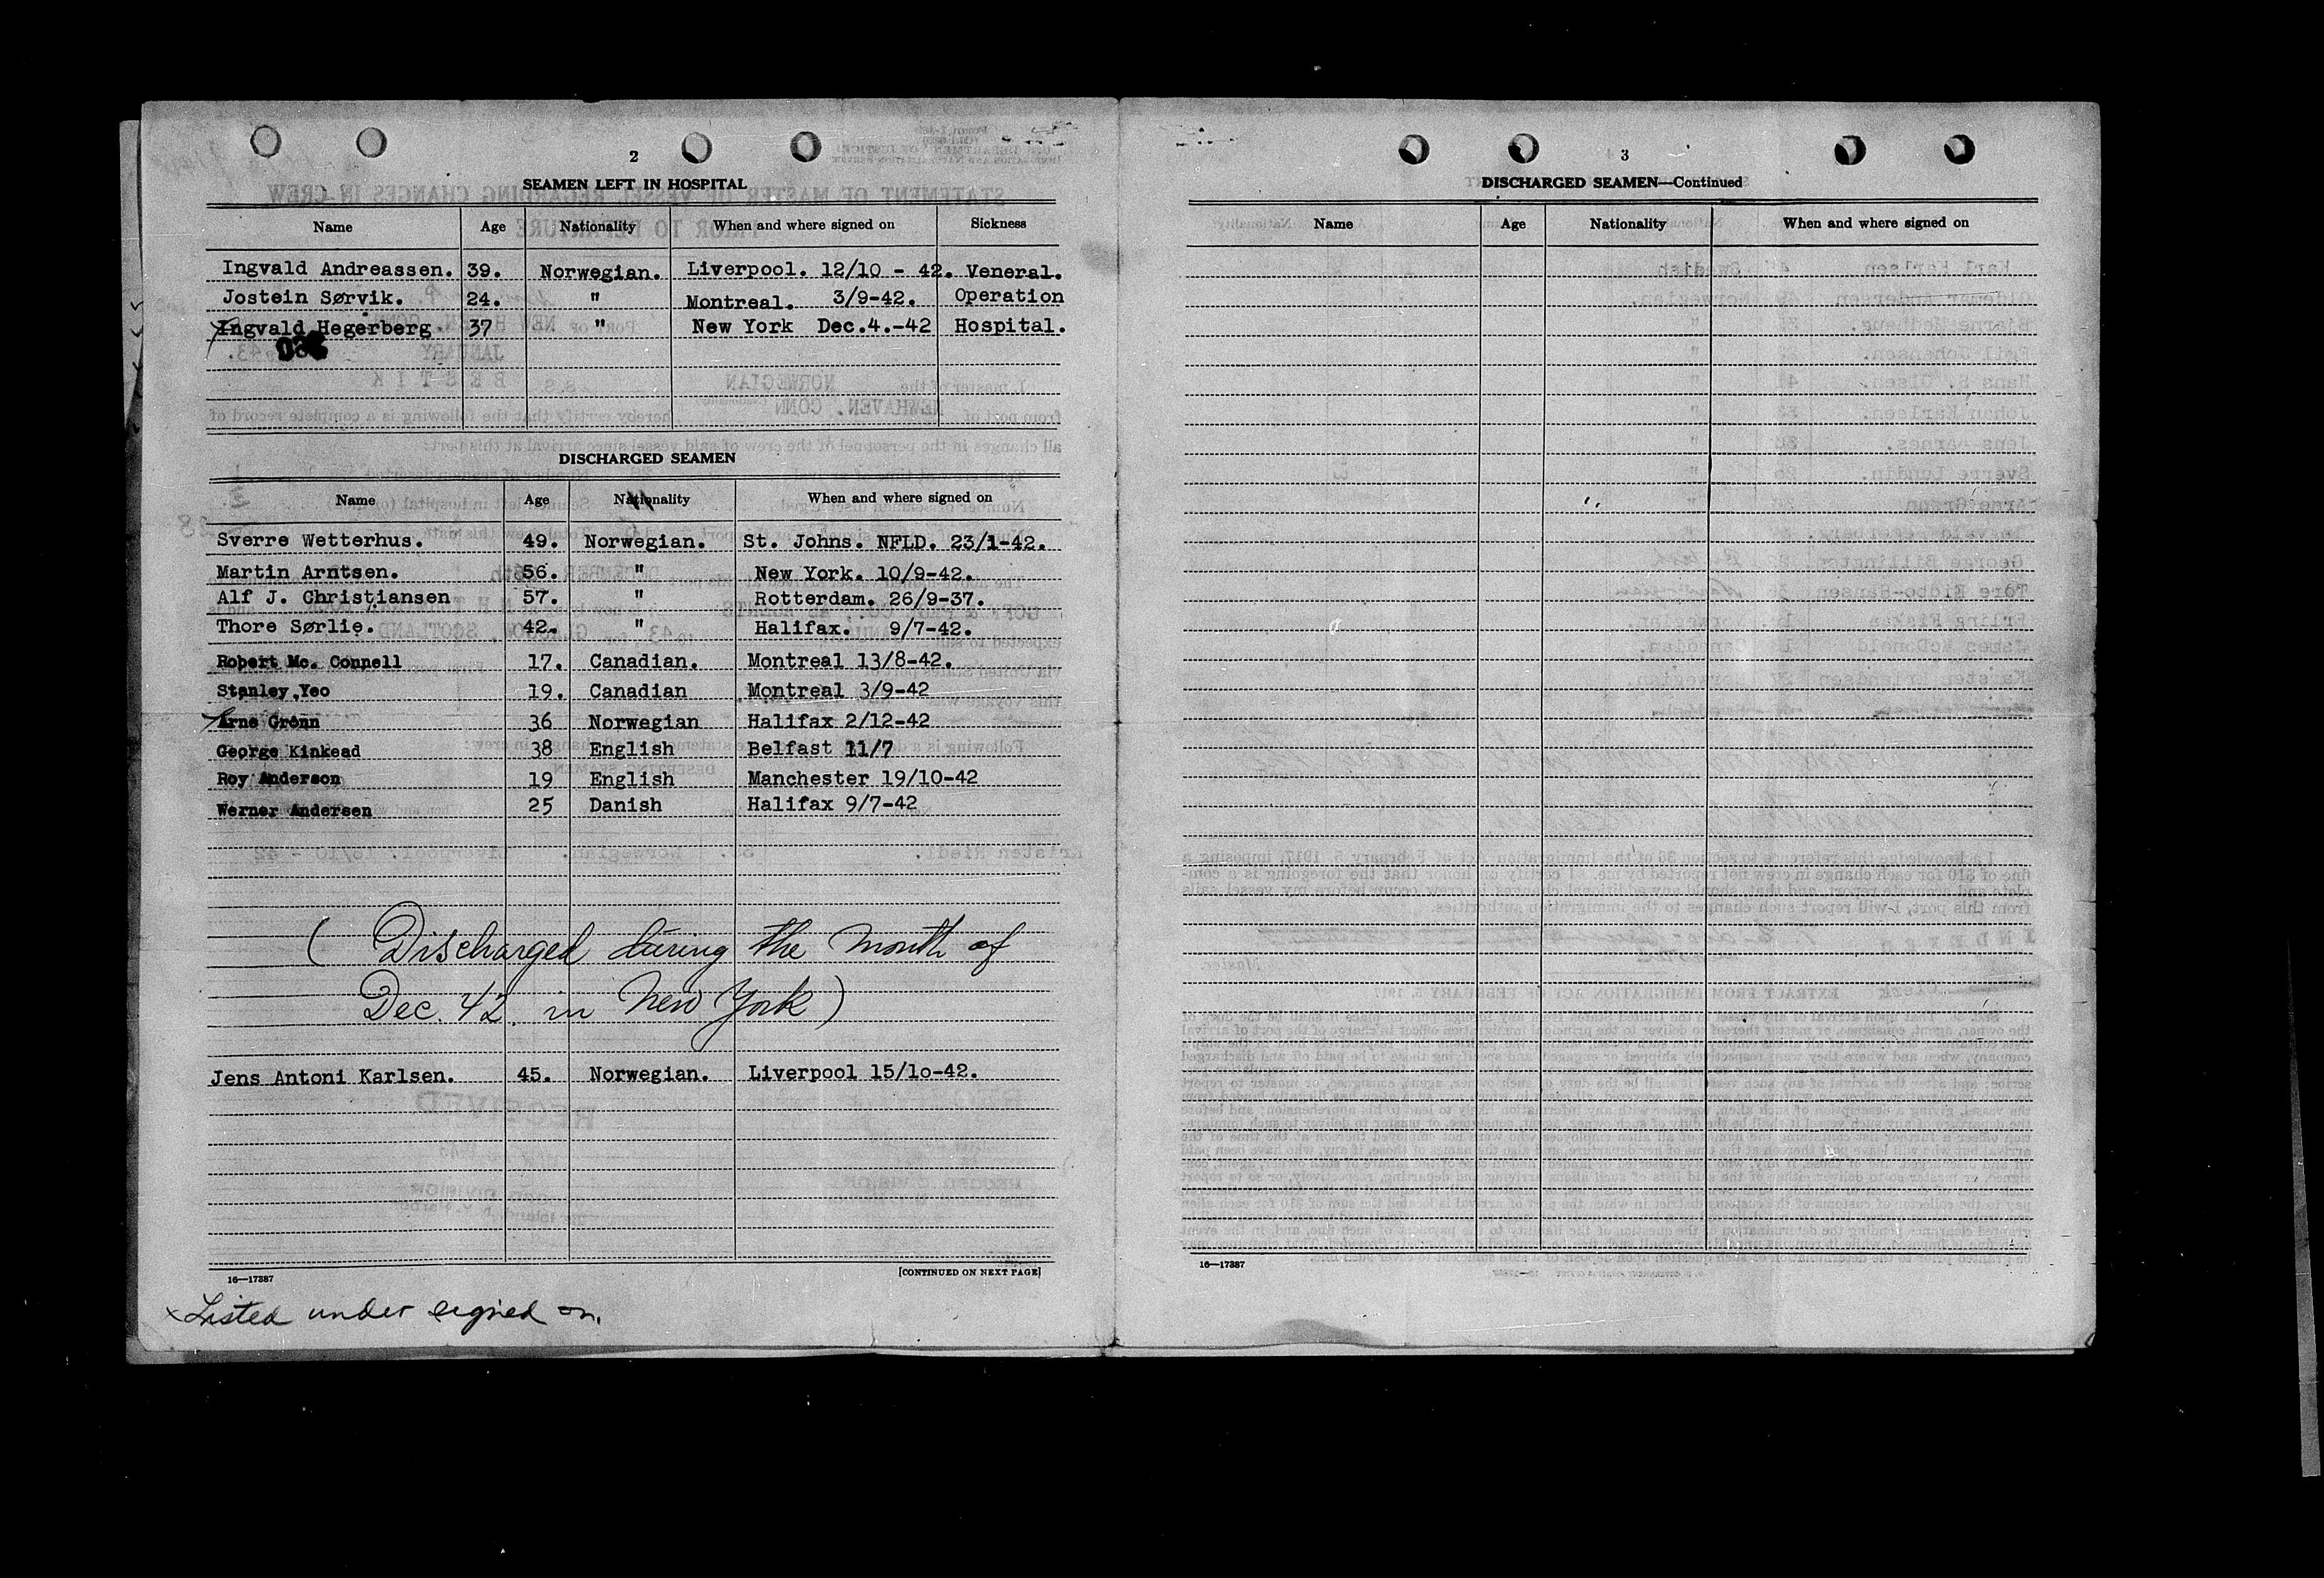 2
SEAMEN LEFT IN HOSPITAL
Name Age Nationality When and where signed on Sickness
Ingvald Andreassen. 39. Norwegian. Liverpool. 12/10 - 42. Veneral.
Jostein Sørvik. 24. " Montreal. 3/9-42. Operation
Ingvald Hegerberg. 37 " New York Dec.4.-42 Hospital.
DISCHARGED SEAMEN
Name Age Nationality When and where signed on
Sverre Wetterhus. 49. Norwegian. St. Johns. NFLD. 23/1-42.
Martin Arntsen. 56. " New York. 10/9-42.
Alf J. Christiansen 57. " Rotterdam. 26/9-37.
Thore Sørlie. 42. " Halifax. 9/7-42.
Robert Mc. Connell 17. Canadian. Montreal 13/8-42.
Stanley Yeo 19. Canadian Montreal 3/9-42
Arne Grönn 36 Norwegian Halifax 2/12-42
George Kinkead 38 English Belfast 11/7
Roy Anderson 19 English Manchester 19/10-42
Werner Andersen 25 Danish Halifax 9/7-42
( Discharged during the month of
Dec. 42. in New York )
Jens Antoni Karlsen. 45. Norwegian. Liverpool 15/10-42.
16—17387 [CONTINUED ON NEXT PAGE]
x Listed under signed on.
3
DISCHARGED SEAMEN—Continued
Name Age Nationality When and where signed on
16—17387